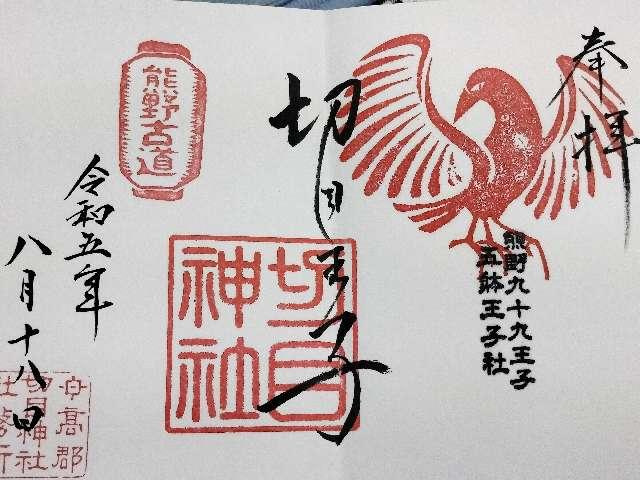 奉拝
熊野九十九王子
五躰王子社
切目王子
切目
神社
熊野
古道
令和五年
八月十八日
日高郡
切目神社
社務所